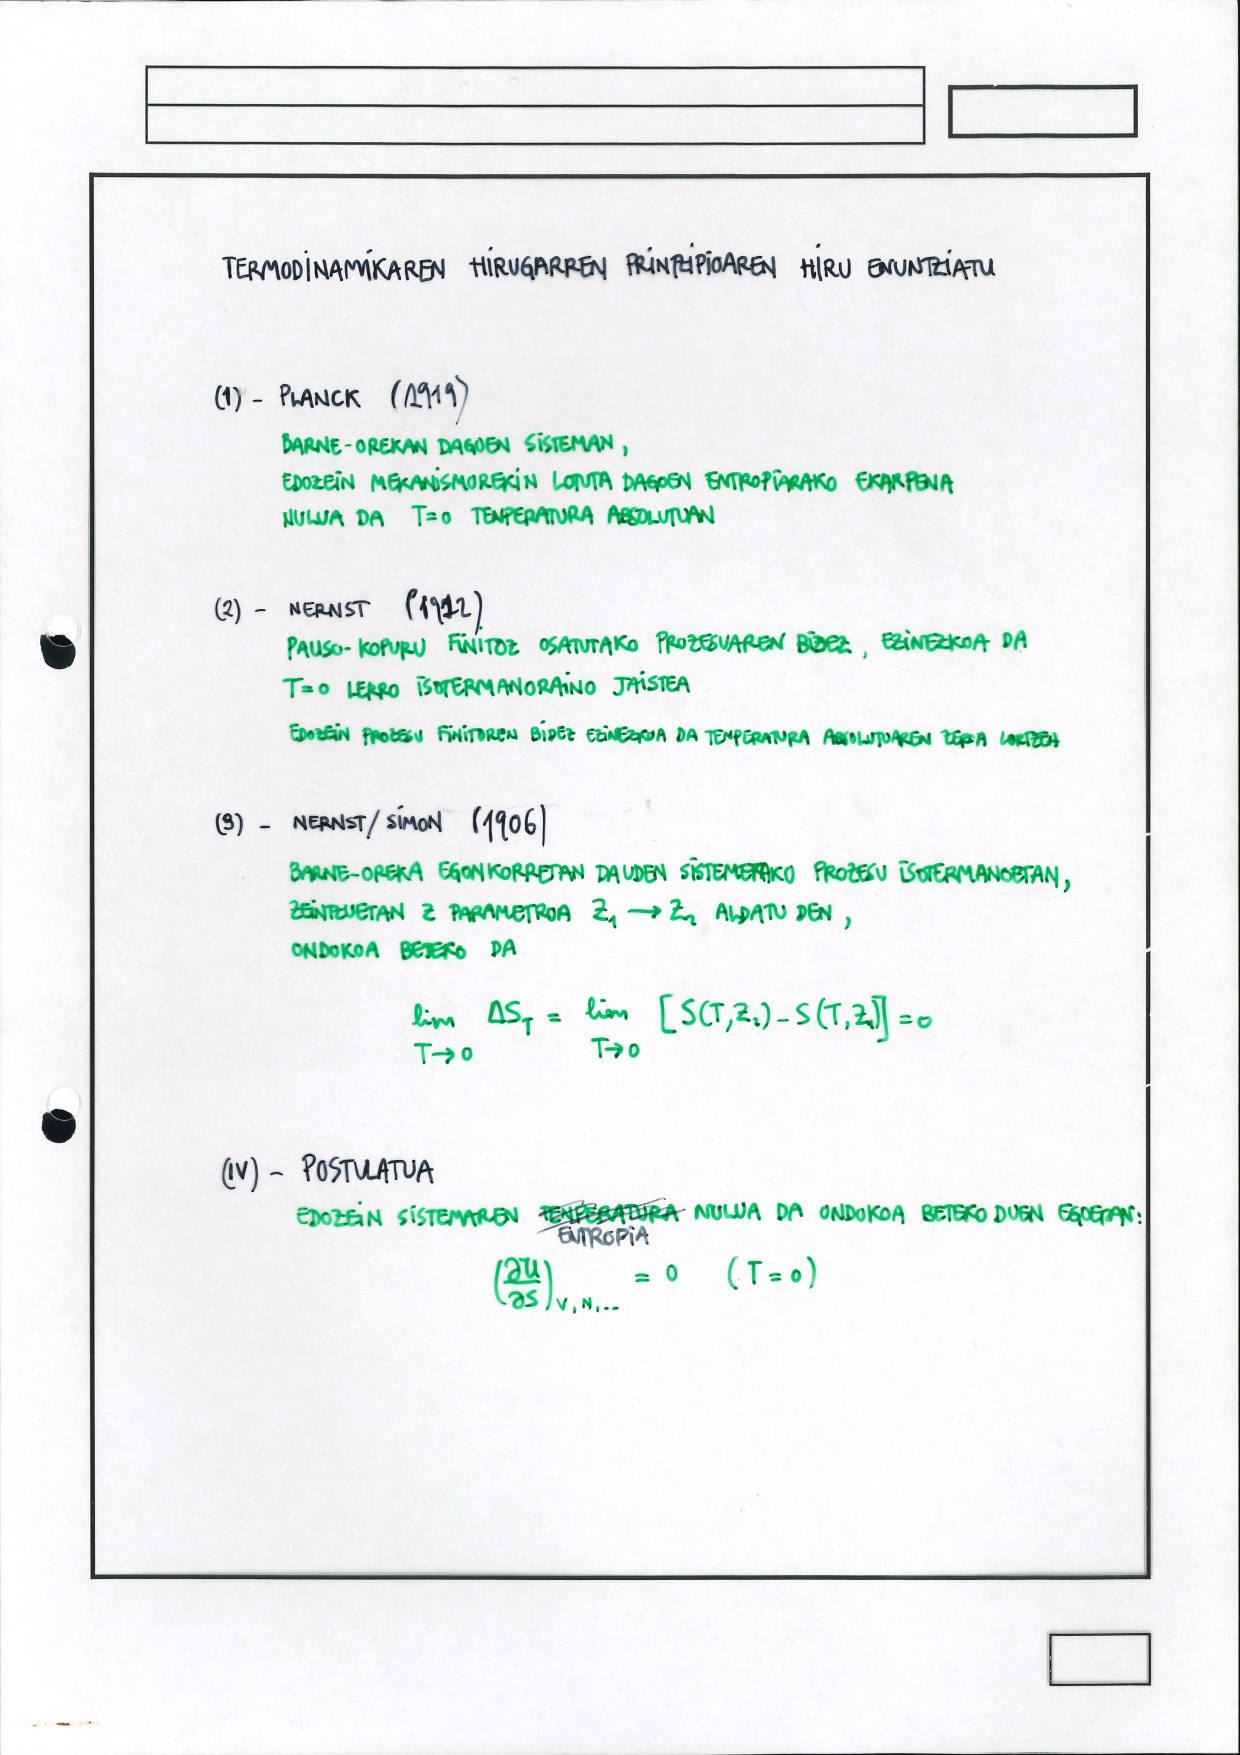 TERMODINAMIKAREN HIRUGARREN PRINTZIPIOAREN HIRU ENUNTZIATU
(1) - PLANCK (1919)
BARNE-OREKAN DAGOEN SISTEMAN,
EDOZEIN MEKANISMOREKIN LOTUTA DAGOEN ENTROPIARAKO EKARPENA
NULUA DA T=0 TENPERATURA ABSOLUTUAN
(2) - NERNST (1912)
PAUSO-KOPURU FINITOZ OSATUTAKO PROZESUAREN BIDEZ, EZINEZKOA DA
T=0 LERRO ISOTERMANORAINO JAISTEA
EDOZEIN PROZESU FINITOREN BIDEZ EZINEZKOA DA TEMPERATURA ABSOLUTUAREN ZEROA LORTZEA
(3) - NERNST/SIMON (1906)
BARNE-OREKA EGONKORRETAN DAUDEN SISTEMETAKO PROZESU ISOTERMANOETAN,
ZEINTZUETAN Z PARAMETROA Z₁ → Z₂ ALDATU DEN,
ONDOKOA BETEKO DA
lim ΔS_T = lim [S(T,Z₂) - S(T,Z₁)] = 0
T→0 T→0
(IV) - POSTULATUA
EDOZEIN SISTEMAREN TENPERATURA NULUA DA ONDOKOA BETEKO DUEN EGOERAN:
ENTROPIA
(∂U/∂S)_V,N,... = 0 (T=0)